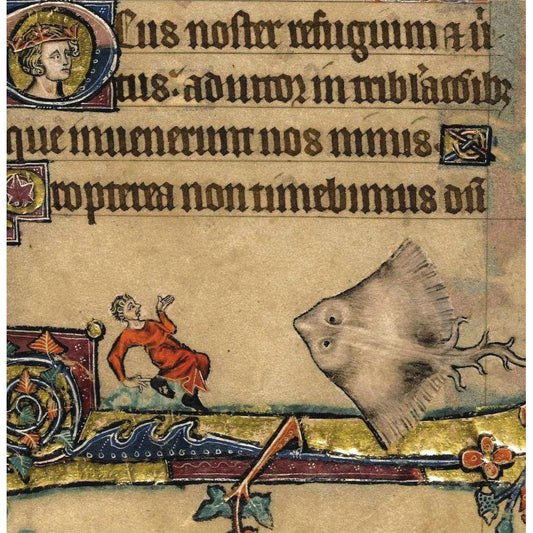 Deus noster refugium ⁊ uͥ
tus: adiutor in tribl̕acōibꝫ
que inuenerunt nos nimis.
Propterea non timebimus dū